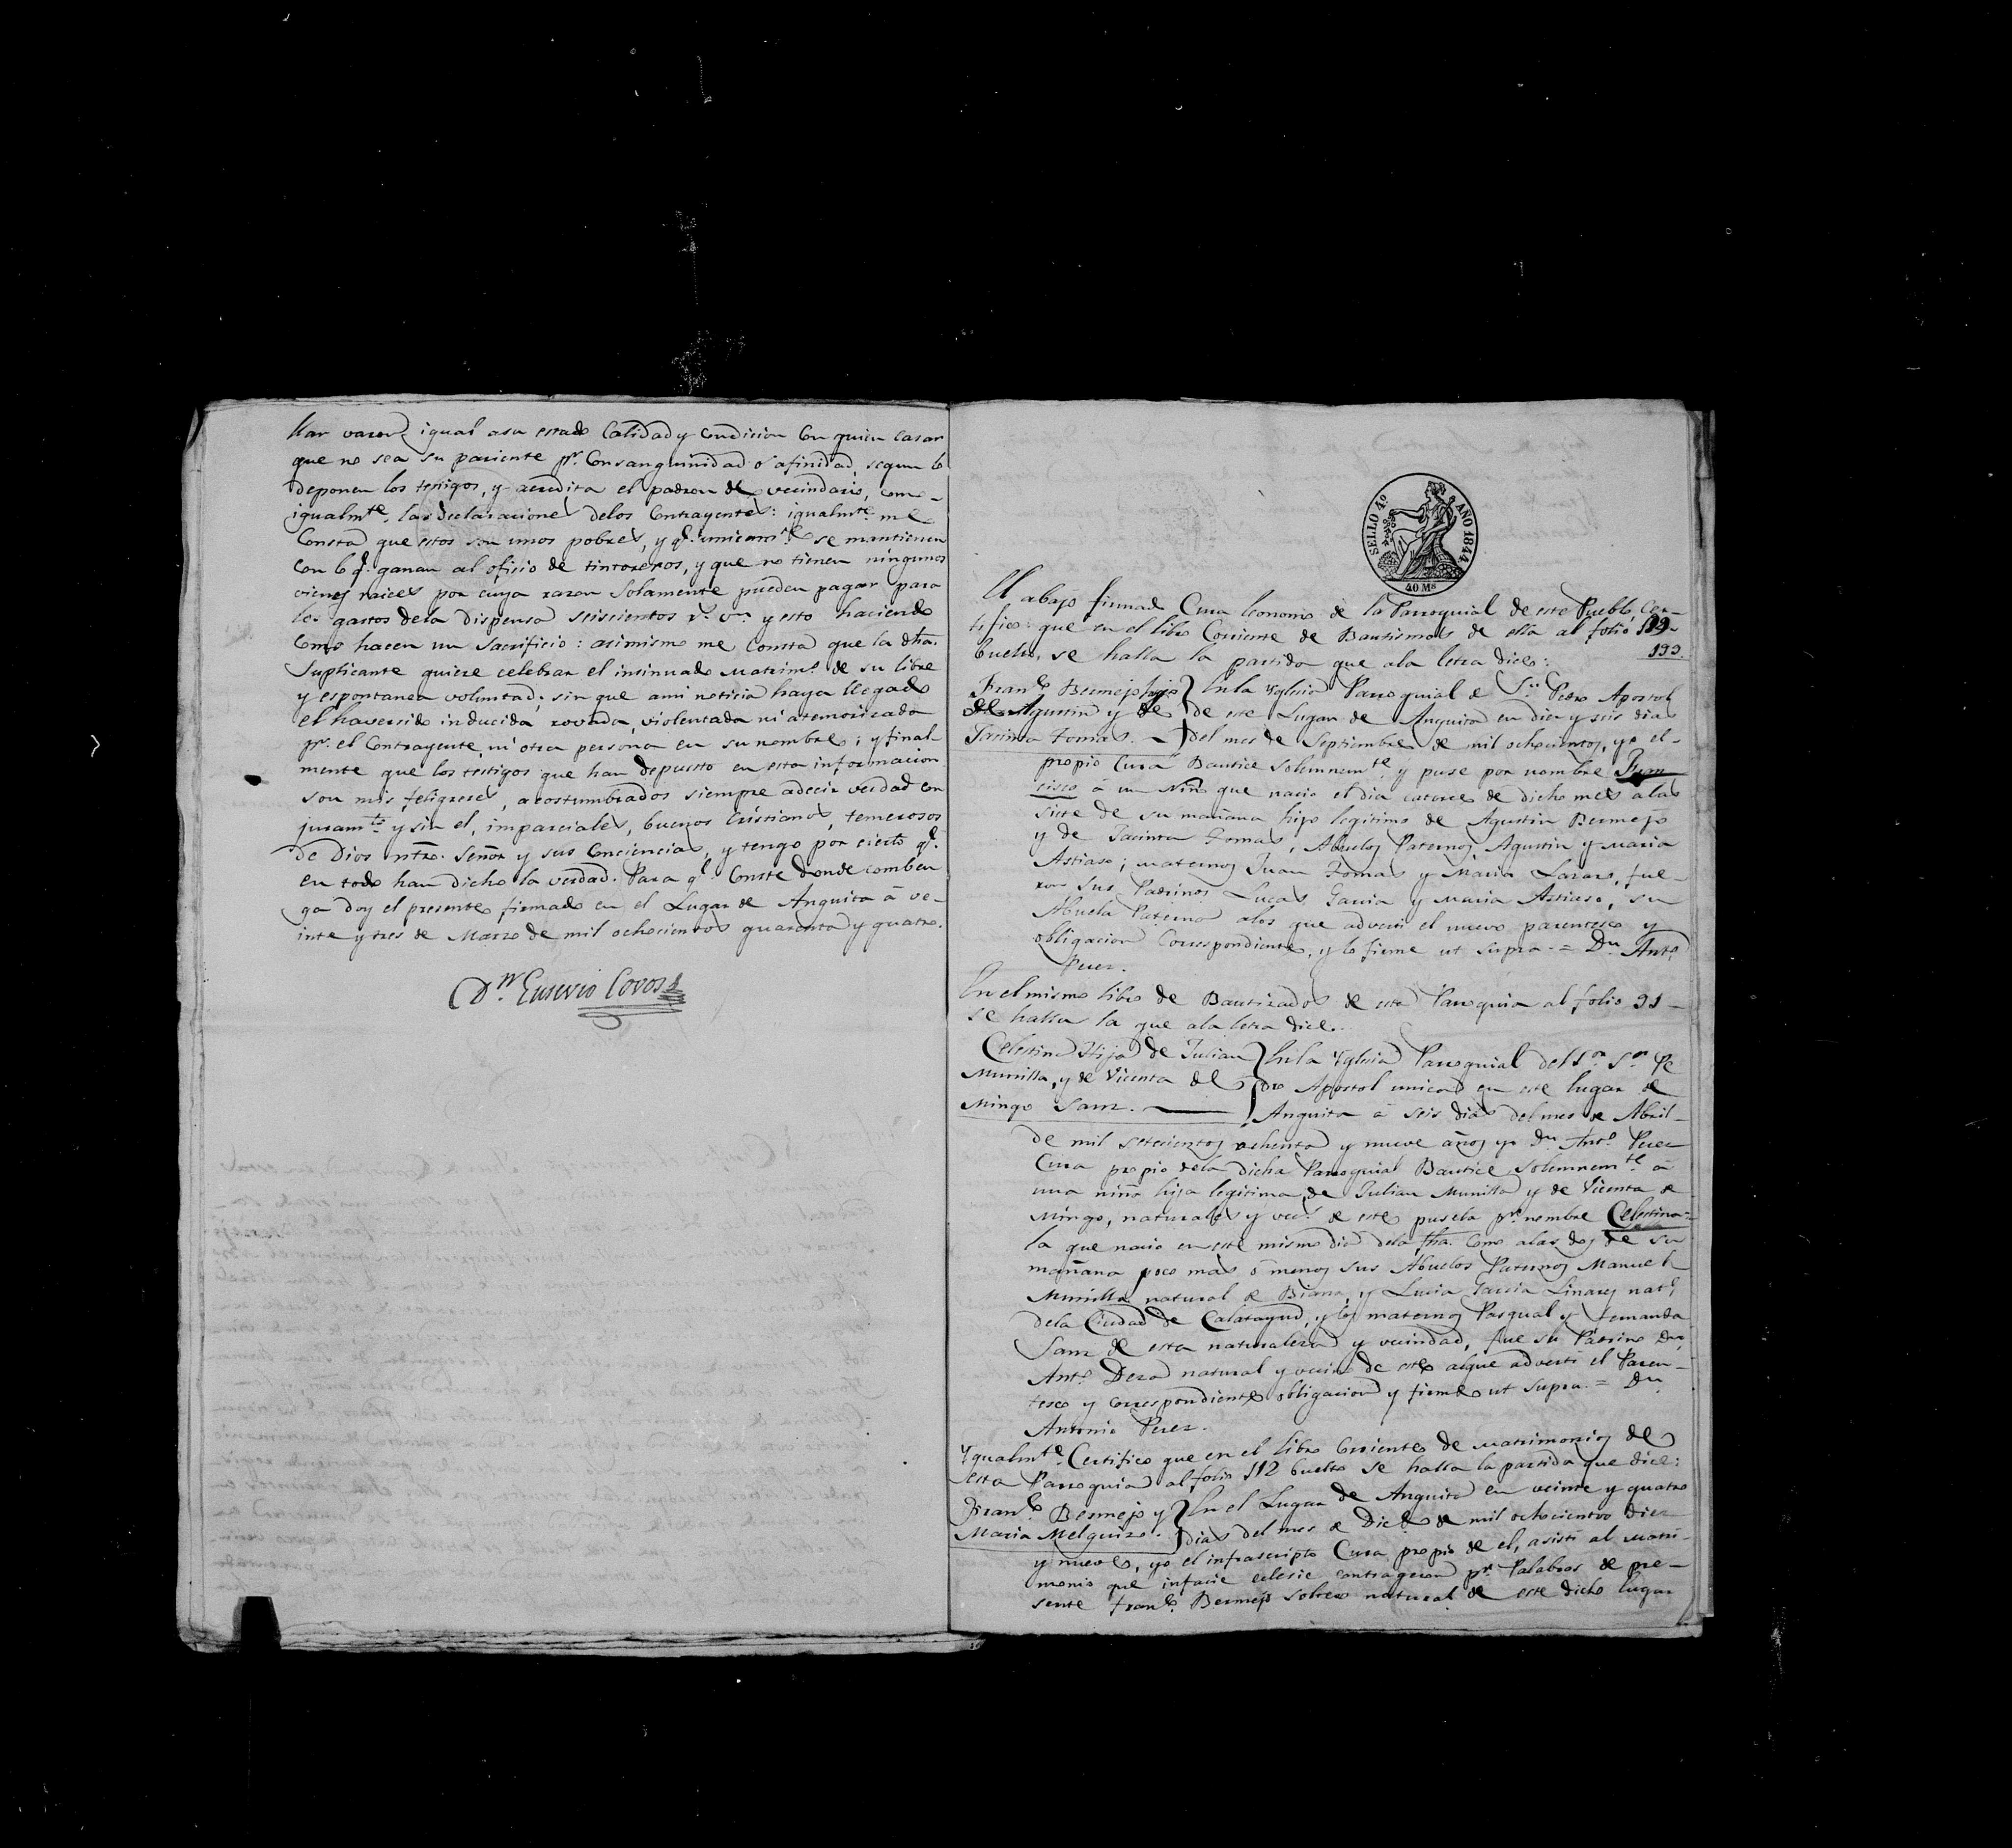 llar varon igual asu estado Calidad y condicion Con quien Casar
que no sea su pariente pr. Consanguinidad o afinidad, segun lo
deponen los testigos, y acredita el padron de vecindario, como
igualmte. las declaraciones delos Contrayentes: igualmte. me
Consta que estos son unos pobres, y qe. unicamte. se mantienen
con lo qe. ganan al oficio de tintoreros, y que no tienen ningunos
vienes raices por cuya razon Solamente pueden pagar para
los gastos dela dispensa seiscientos rs. vn. y esto haciendo
como hacen un Sacrificio: asimismo me Consta que la dha.
Suplicante quiere celebrar el insinuado matrimo. de su libre
y espontanea voluntad, sin que ami noticia haya llegado
el haversido inducida, rovada, violentada ni atemorizada
pr. el Contrayente, ni otra persona en su nombre; y final-
mente que los testigos que han depuesto en esta informacion
son mis feligreses, acostumbrados siempre adecir verdad con
juramto. y sin el, imparciales, buenos Cristianos, temerosos
de Dios ntro. Señor y sus Conciencias, y tengo por cierto qe.
en todo han dicho la verdad. Para qe. Conste donde comben
ga doy el presente firmado en el Lugar de Anguita á ve-
inte y tres de Marzo de mil ochocientos quarenta y quatro.
Dn. Eusevio Covos
SELLO 4º. AÑO 1844.
40 Ms
El abajo firmado Cura Economo de la Parroquial de este Pueblo, Cer-
tifico: que en el libro Corriente de Bautismos de ella al folio 199
buelto, se halla la partida que ala letra dice: 199.
Franco. Bermejo hijo En la Yglesia Parroquial de Sn. Pedro Apostol
de Agustin y de de este Lugar de Anguita en diez y seis dias
Jacinta Tomas. del mes de Septiembre de mil ochocientos, yo el
propio Cura Bautice solemnemte. y puse por nombre Fran
cisco á un Niño que nacio el dia catorce de dicho mes alas
siete de su mañana hijo legitimo de Agustin Bermejo
y de Jacinta Tomas, Abuelos Paternos Agustin y Maria
Astiaso; maternos Juan Tomas y Maria Lazaro, fue-
ron sus Padrinos Lucas Garcia y Maria Astiaso, su
Abuela Paterna alos que adverti el nuevo parentesco y
obligacion Correspondiente, y lo firme ut supra = Dn. Anto.
Perez.
En el mismo libro de Bautizados de esta Parroquia al folio 91
se halla la que ala letra dice.
Celestina Hija de Julian En la Yglesia Parroquial del Sr. Sn. Pe
Munilla, y de Vicenta de dro Apostol unica en este lugar de
Mingo Sanz. Anguita á seis dias del mes de Abril
de mil setecientos ochenta y nueve años yo Dn. Anto. Perez
Cura propio dela dicha Parroquial Bautice solemnemte. á
una niña hija legitima de Julian Munilla y de Vicenta de
Mingo, naturales y vecs. de este pusela pr. nombre Celestina
la que nacio en este mismo dia dela fha. como alas dos de su
mañana poco mas ó menos sus Abuelos Paternos Manuel
Munilla natural de Biana, y Lucia Garcia Linares natl.
dela Ciudad de Calatayud, y los maternos Pasqual y Fernanda
Sanz de esta naturaleza y vecindad, fue su Padrino Dn.
Anto. Deza natural y vecino de este alque adverti el Paren-
tesco y correspondiente obligacion y firmé ut supra. = Dn.
Antonio Perez.
Ygualmte. Certifico que en el libro Corriente de matrimonios de
esta Parroquia al folio 112 buelto se halla la partida que dice:
Franco. Bermejo y En el Lugar de Anguita en veinte y quatro
Maria Melguizo. dias del mes de Dice. de mil ochocientos diez
y nueve, yo el infrascripto Cura propio de el, asisti al matri-
monio que infacie eclesie contrageron pr. Palabras de pre-
sente Franco. Bermejo soltero natural de este dicho lugar